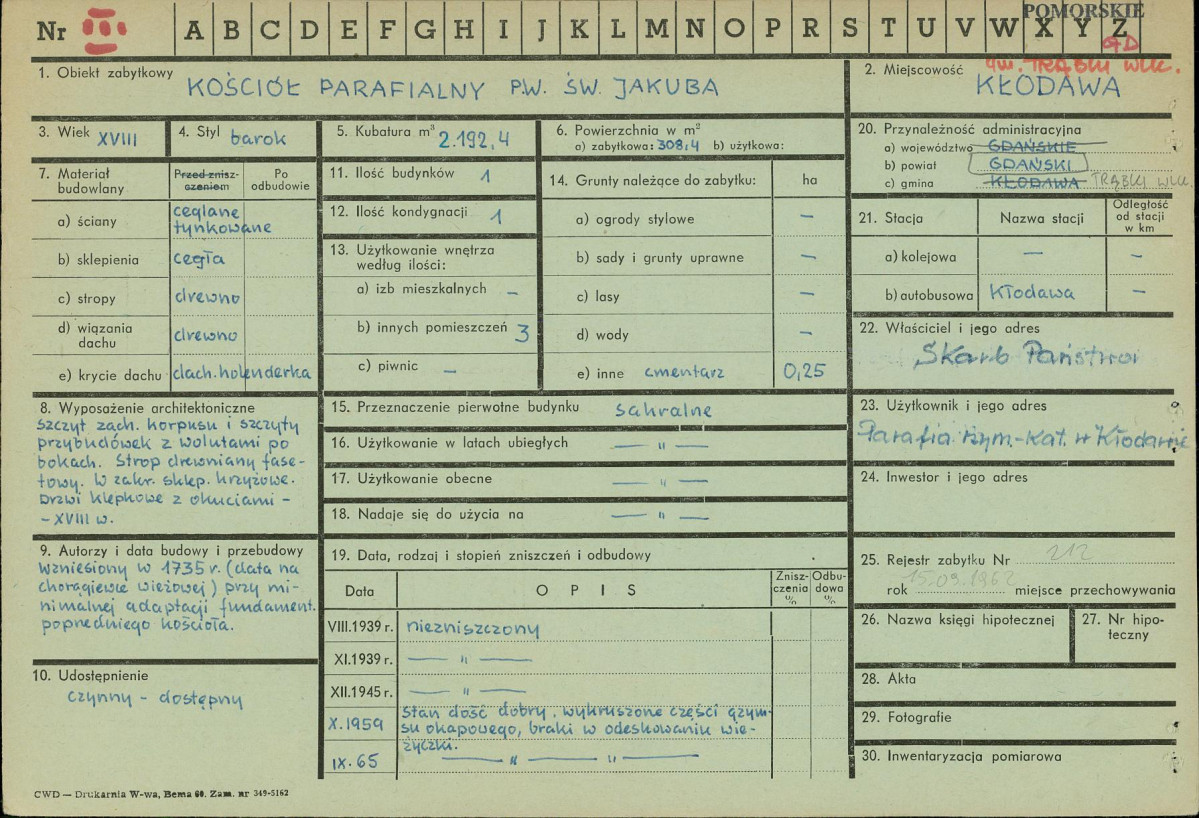 POMORSKIE
Nr III A B C D E F G H I J K L M N O P R S T U V W X Y Z
GD
gm. TRĄBKI WLK.
1. Obiekt zabytkowy
KOŚCIÓŁ PARAFIALNY P.W. ŚW. JAKUBA
2. Miejscowość
KŁODAWA
3. Wiek XVIII
4. Styl barok
5. Kubatura m³
2.192,4
6. Powierzchnia w m²
a) zabytkowa: 308,4 b) użytkowa:
20. Przynależność administracyjna
a) województwo GDAŃSKIE
b) powiat GDAŃSKI
c) gmina KŁODAWA TRĄBKI WLK.
7. Materiał
budowlany
Przed znisz-
czeniem
Po
odbudowie
a) ściany ceglane
tynkowane
b) sklepienia cegła
c) stropy drewno
d) wiązania
dachu drewno
e) krycie dachu dach. holenderka
11. Ilość budynków 1
12. Ilość kondygnacji 1
13. Użytkowanie wnętrza
według ilości:
a) izb mieszkalnych –
b) innych pomieszczeń 3
c) piwnic –
14. Grunty należące do zabytku: ha
a) ogrody stylowe –
b) sady i grunty uprawne –
c) lasy –
d) wody –
e) inne cmentarz 0,25
21. Stacja Nazwa stacji Odległość
od stacji
w km
a) kolejowa – –
b) autobusowa Kłodawa –
22. Właściciel i jego adres
Skarb Państwa
8. Wyposażenie architektoniczne
szczyt zach. korpusu i szczyty
przybudówek z wolutami po
bokach. Strop drewniany fase-
towy. W zakr. sklep. krzyżowe.
Drzwi klepkowe z okuciami –
– XVIII w.
15. Przeznaczenie pierwotne budynku sakralne
16. Użytkowanie w latach ubiegłych — " —
17. Użytkowanie obecne — " —
18. Nadaje się do użycia na — " —
23. Użytkownik i jego adres
Parafia rzym.-kat. w Kłodawie
24. Inwestor i jego adres
9. Autorzy i data budowy i przebudowy
Wzniesiony w 1735 r. (data na
chorągiewce wieżowej) przy mi-
nimalnej adaptacji fundament.
poprzedniego kościoła.
10. Udostępnienie
czynny – dostępny
19. Data, rodzaj i stopień zniszczeń i odbudowy
Data OPIS Znisz-
czenia
% Odbu-
dowa
%
VIII.1939 r. niezniszczony
XI.1939 r. — " —
XII.1945 r. — " —
X.1959 Stan dość dobry, wykruszone części gzym-
su okapowego, braki w odeskowaniu wie-
życzki.
IX.65 — " — " —
25. Rejestr zabytku Nr 212
15.09.1962
rok miejsce przechowywania
26. Nazwa księgi hipotecznej
27. Nr hipo-
teczny
28. Akta
29. Fotografie
30. Inwentaryzacja pomiarowa
CWD — Drukarnia W-wa, Bema 60. Zam. nr 349-5162